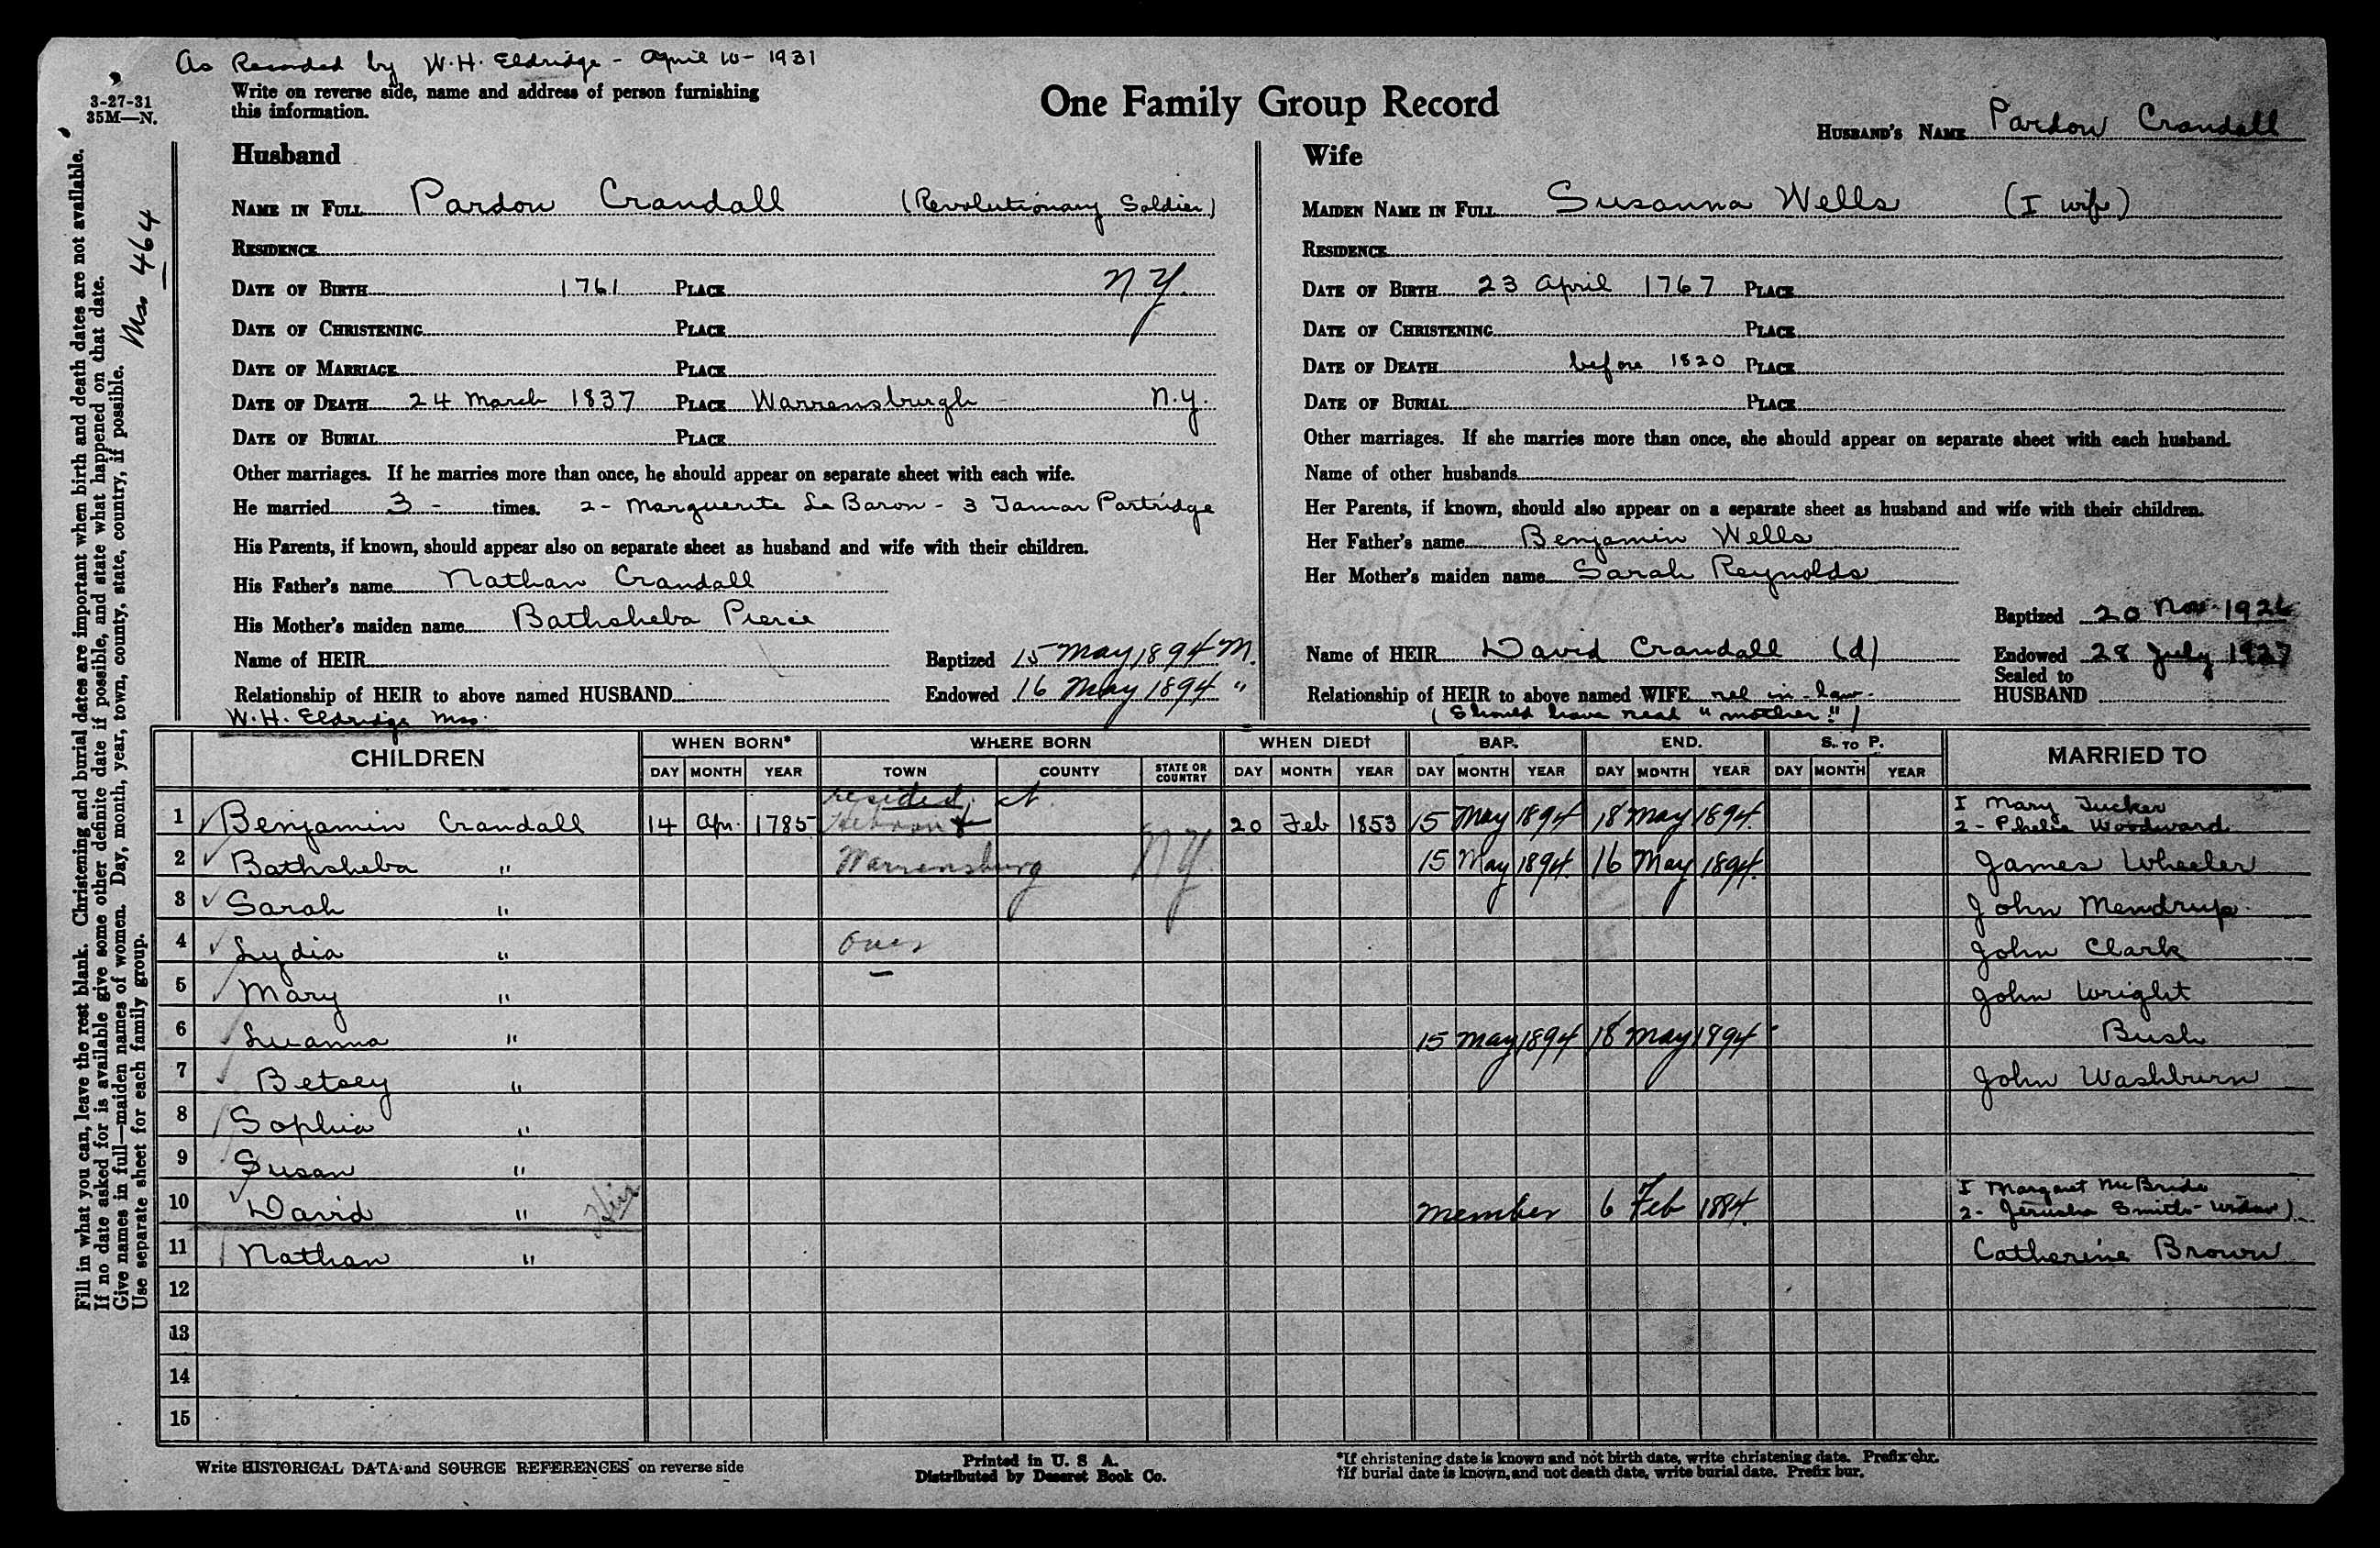 As Recorded by W.H. Eldridge - April 10 - 1931
3-27-31
35M—N.
Write on reverse side, name and address of person furnishing
this information.
One Family Group Record
HUSBAND'S NAME Pardon Crandall
Fill in what you can, leave the rest blank. Christening and burial dates are important when birth and death dates are not available.
If no date asked for is available give some other definite date if possible, and state what happened on that date.
Give names in full—maiden names of women. Day, month, year, town, county, state, country, if possible.
Use separate sheet for each family group.
Ms 464
Husband
NAME IN FULL Pardon Crandall (Revolutionary Soldier)
RESIDENCE
DATE OF BIRTH 1761 PLACE N Y.
DATE OF CHRISTENING PLACE
DATE OF MARRIAGE PLACE
DATE OF DEATH 24 March 1837 PLACE Warrensburgh N.Y.
DATE OF BURIAL PLACE
Other marriages. If he marries more than once, he should appear on separate sheet with each wife.
He married 3 - times. 2 - Marguerite La Baron - 3 Tamar Partridge
His Parents, if known, should appear also on separate sheet as husband and wife with their children.
His Father's name Nathan Crandall
His Mother's maiden name Bathsheba Pierce
Name of HEIR Baptized 15 May 1894 M.
Relationship of HEIR to above named HUSBAND Endowed 16 May 1894 "
W.H. Eldridge Mss.
Wife
MAIDEN NAME IN FULL Susanna Wells (I wife)
RESIDENCE
DATE OF BIRTH 23 April 1767 PLACE
DATE OF CHRISTENING PLACE
DATE OF DEATH before 1820 PLACE
DATE OF BURIAL PLACE
Other marriages. If she marries more than once, she should appear on separate sheet with each husband.
Name of other husbands
Her Parents, if known, should also appear on a separate sheet as husband and wife with their children.
Her Father's name Benjamin Wells
Her Mother's maiden name Sarah Reynolds
Baptized 20 Nov. 1926
Name of HEIR David Crandall (d) Endowed 28 July 1927
Sealed to
Relationship of HEIR to above named WIFE rel in-law - HUSBAND
(Should have read "mother")
CHILDREN WHEN BORN* WHERE BORN WHEN DIED† BAP. END. S. TO P. MARRIED TO
DAY MONTH YEAR TOWN COUNTY STATE OR COUNTRY DAY MONTH YEAR DAY MONTH YEAR DAY MONTH YEAR DAY MONTH YEAR
resided, ct I Mary Tucker
1 Benjamin Crandall 14 Apr. 1785 Hebron 20 Feb 1853 15 May 1894 18 May 1894. 2 - Phelia Woodward
2 Bathsheba " Warrensburg NY. 15 May 1894. 16 May 1894. James Wheeler
3 Sarah " John Mendrup.
4 Lydia " over John Clark
5 Mary " John Wright
6 Luanna " 15 May 1894 18 May 1894 Bush
7 Betsey " John Washburn
8 Sophia "
9 Susan "
I Margaret McBride
10 David " Heir member 6 Feb 1884. 2 - Jerusha Smith - widow)
11 Nathan " Catherine Brown
12
13
14
15
Write HISTORICAL DATA and SOURCE REFERENCES on reverse side
Printed in U. S A.
Distributed by Deseret Book Co.
*If christening date is known and not birth date, write christening date. Prefix chr.
†If burial date is known, and not death date, write burial date. Prefix bur.